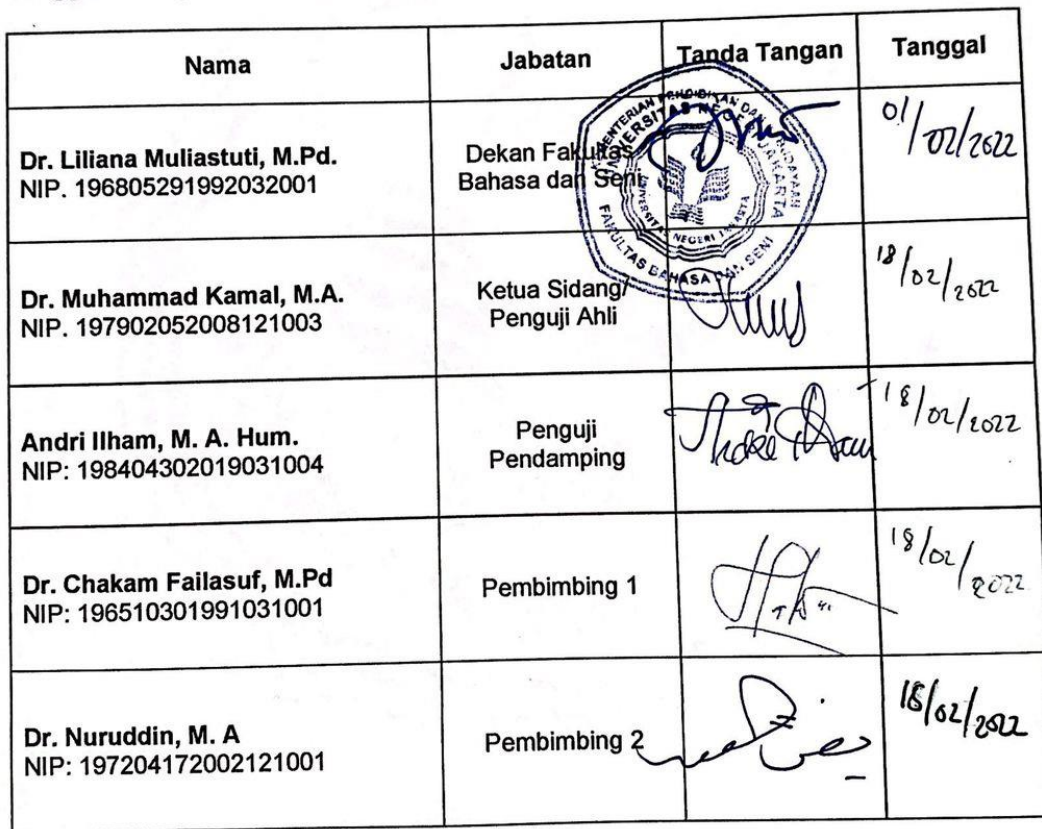 Nama Jabatan Tanda Tangan Tanggal
Dr. Liliana Muliastuti, M.Pd.
NIP. 196805291992032001
Dekan Fakultas
Bahasa dan Seni
01/02/2022
UNIVERSITAS NEGERI JAKARTA
FAKULTAS BAHASA DAN SENI
UNIVERSITAS NEGERI JAKARTA
Dr. Muhammad Kamal, M.A.
NIP. 197902052008121003
Ketua Sidang/
Penguji Ahli
18/02/2022
Andri Ilham, M. A. Hum.
NIP: 198404302019031004
Penguji
Pendamping
18/02/2022
Dr. Chakam Failasuf, M.Pd
NIP: 196510301991031001
Pembimbing 1
18/02/2022
Dr. Nuruddin, M. A
NIP: 197204172002121001
Pembimbing 2
18/02/2022